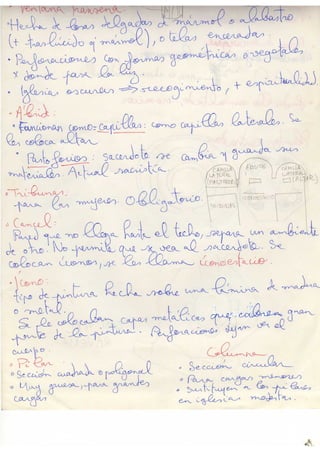 Ventana persona
- Hecha de losas delgadas de mármol o alabastro
(+ traslúcido q mármol), o telas enceradas
· Perforaciones con formas geométricas o vegetales
x donde pasa la luz.
· Iglesias oscuras => recogimiento, + espiritualidad
· Ábside:
· Funcionan como capillas: como capillas laterales. Se
les coloca altar
· Pastoforios: sacerdote se cambia y guarda sus
materiales. Actual sacristía.
· Tribunas:
para las mujeres. Obligatorio.
CAPILLA
ÁBSIDE
CAPILLA
LATERAL
· Cancel:
Pared que no llega hasta el techo, separa un ambiente
de otro. No permite que se vea al sacerdote. Se
colocan íconos, se les llama iconostacio.
· Ícono:
tipo de pintura hecha sobre una lámina de madera
o metal.
Se le colocaban capas metálicas que cubren gran
parte de la pintura. Perforaciones dejan ver el
cuerpo.
· Pilar
· Sección cuadrada o poligonal
· Muy gruesa, para grandes
cargas
Columna
· Sección circular
· Para cargas menores
· Sustituyen a los pilares
en iglesias modestas.